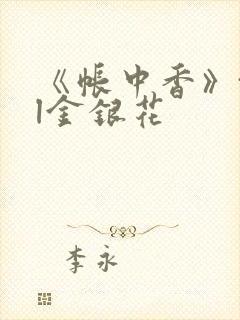 《帐中香》
|金银花
李永